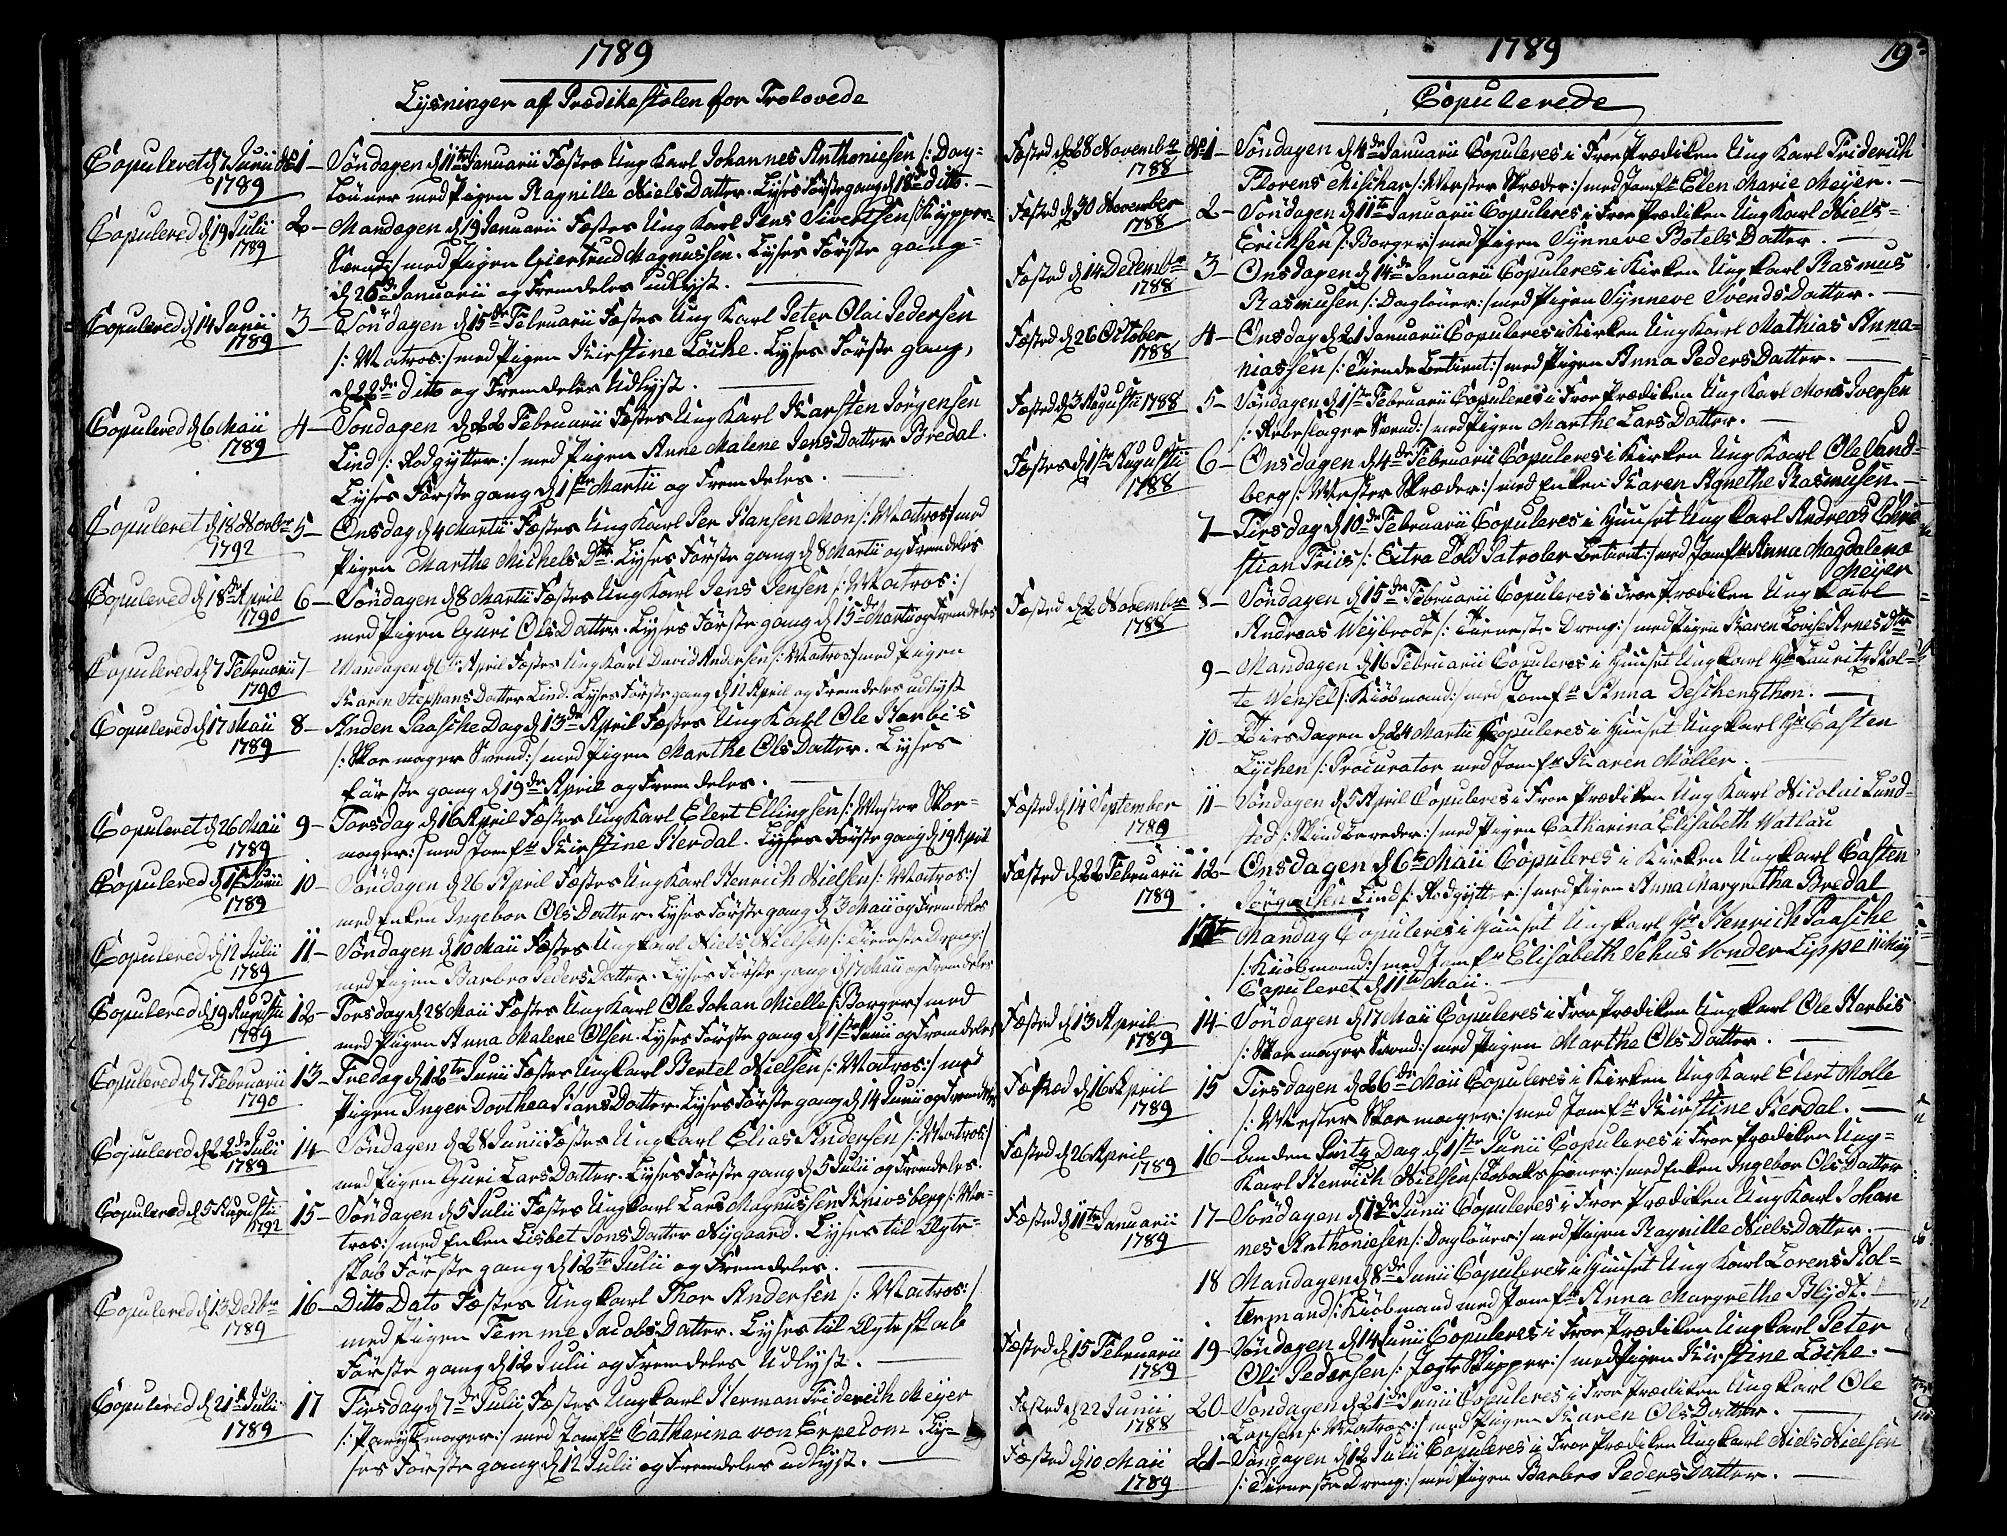 1789
Lysninger af Prædikestolen for Trolovede
Copuleret d 7 Junii 1789
No 1 - Søndagen d 11te Januarii Fæstes Ung Karl Johannes Anthoniesen /: Dag-
Lönner med Pigen Ragnille Niels Datter. Lyses Første gang d 18de ditto. -
Copulered d 19 Julii 1789
2 - Mandagen d 19 Januarii Fæstes Ung Karl Jens Sivertsen /: Kypper
Svend :/ med Pigen Giertrud Magnussen. Lyses Første gang
d 26de Januarii og Fremdeles udlyst.
Copulered d 14 Junii 1789
3 - Søndagen d 15de Februarii Fæstes Ung Karl Peter Olai Pedersen
/: Matros :/ med Pigen Kirstine Löcke. Lyses Første gang,
d 22de ditto og Fremdeles Udlyst.
Copulered d 6 Maii 1789
4 - Søndagen d 22 Februarii Fæstes Ung Karl Karsten Jörgensen
Lind /: Rodgytter :/ med Pigen Anne Malene Jens Datter Bredal.
Lyses Første gang d 1ste Martii og Fremdeles.
Copuleret d 18 Novbr 1792
5 - Onsdag d 4 Martii Fæstes Ung Karl Per Hansen Mon /: Matros :/ med
Pigen Marthe Michels Dtr. Lyses Første gang d 8 Martii og Fremdeles
Copulered d 18de April 1790
6 - Søndagen d 8 Martii Fæstes Ung Karl Jens Jensen /: Matros :/
med Pigen Guri Ols Datter. Lyses Første gang d 15de Martii og Fremdeles
Copulered d 7 Februarii 1790
7 - Mandagen d 6te April Fæstes Ung Karl David Andersen /: Matros :/ med Pigen
Karen Stephans Datter Lind. Lyses Første gang d 12 April og Fremdeles udlyst
Copulered d 17 Maii 1789
8 - Anden Paasche Dag d 13de April Fæstes Ung Karl Ole Harbis
/: Skomager Svend :/ med Pigen Marthe Ols Datter. Lyses
første gang d 19de April og Fremdeles.
Copuleret d 26 Maii 1789
9 - Torsdag d 16 April Fæstes Ung Karl Elert Ellingsen /: Mester Skor-
mager :/ med Jomfr Kirstine Herdal. Lyses Første gang d 19 April
Copulered d 1ste Junii 1789
10 - Søndagen d 26 April Fæstes Ung Karl Henrich Nielsen /: Matros :/
med Enken Ingebor Ols Datter. Lyses Første gang d 3 Maii og Fremdeles
Copulered d 12 Julii 1789
11 - Søndagen d 10 Maii Fæstes Ung Karl Niels Nielsen /: Tieneste Dreng :/
med Pigen Barbro Peders Datter. Lyses Første gang d 17 Maii og Fremdeles
Copulered d 19 Augusti 1789
12 - Torsdag d 28 Maii Fæstes Ung Karl Ole Johan Mielle /: Borger :/ med
med Pigen Anna Malene Olsen. Lyses Første gang d 1ste Junii og Fremdeles
Copulered d 7 Februarii 1790
13 - Fredag d 12te Junii Fæstes Ungkarl Bertel Nielsen /: Matros :/ med
Pigen Inger Dorthea Hans Datter. Lyses Første gang d 14 Junii og Fremdeles
Copulered d 22de Julii 1789
14 - Søndagen d 28 Junii Fæstes Ungkarl Elias Andersen /: Matros :/
med Pigen Guri Lars Datter. Lyses Første gang d 5 Julii og Fremdeles.
Copulered d 5 Augustii 1792
15 - Søndagen d 5 Julii Fæstes Ungkarl Lars Magnussen Knivsberg /: Ma-
tros :/ med Enken Lisbet Jons Datter Nygaard. Lyses til Ægte-
skab Første gang d 12te Julii og Fremdeles.
Copulered d 13 Decbr 1789
16 - Ditto Dato Fæstes Ungkarl Thor Andersen /: Matros :/
med Pigen Temme Jacobs Datter. Lyses til Ægteskab
Første gang d 12 Julii og Fremdeles Udlyst.
Copulered d 21de Julii 1789
17 Tirsdag d 7de Julii Fæstes Ungkarl Herman Friderich Meyer
/: Parykmager :/ med Jomfr Catharina von Erpecom. Ly-
ses Første gang d 12 Julii og Fremdeles udlyst.
1789
19
Copulerede
Fæsted d 28 November 1788
No 1 - Søndagen d 4de Januarii Copuleres i Froe Prædiken Ung Karl Friderich
Florens Mischar /: Mester Skræder :/ med Jomfr Elen Marie Meyer.
Fæsted d 30 November 1788
2 - Søndagen d 11te Januarii Copuleres i Froe Prædiken Ung Karl Niels
Ericksen /: Borger :/ med Pigen Synneve Botels Datter.
Fæsted d 14 Decembr 1788
3 - Onsdagen d 14de Januarii Copuleres i Kirken Ungkarl Rasmus
Rasmusen /: Daglöner :/ med Pigen Synneve Svends Datter.
Fæsted d 26 October 1788
4 - Onsdag d 21 Januarii Copuleres i Kirken Ung Karl Mathias Anna-
niassen /: Tiende Betient :/ med Pigen Anna Peders Datter.
Fæsted d 3 Augustii 1788
5 - Søndagen d 1ste Februarii Copuleres i Froe Prædiken Ung Karl Mons Iversen
/: Rebslager Svend :/ med Pigen Marthe Lars Datter.
Fæstes d 1ste Augustii 1788
6 - Onsdagen d 4de Februarii Copuleres i Kirken Ung Karl Ole Sand-
berg /: Mester Skræder :/ med Enken Karen Agnethe Rasmusen.
7 - Tirsdag d 10de Februarii Copuleres i Huuset Ung Karl Andreas Chri
stian Friis /: Extra Told Patroler Betient :/ med Jomfr Anna Magdalena
Meyer
Fæsted d 2 November 1788
8 - Søndagen d 15de Februarii Copuleres i Froe Prædiken Ung Karl
Andreas Weybrodt /: Tieneste Dreng :/ med Pigen Karen Lovise Arnes Dtr
9 - Mandagen d 16 Februarii Copuleres i Huuset Ungkarl Hr Lauritz Hol-
te Wensel /: Kiöbmand :/ med Jomfr Anna Deschengthon.
10 - Tirsdagen d 24 Martii Copuleres i Huuset Ungkarl Hr Casten
Lychen /: Procurator med Jomfr Karen Möller.
Fæsted d 14 September 1789
11 - Søndagen d 5 April Copuleres i Froe Prædiken Ung Karl Nicolai Lund-
sted /: Skind Bereder :/ med Pigen Catharina Elisabeth Watlau
Fæsted d 22 Februarii 1789
12 - Onsdagen d 6te Maii Copuleres i Kirken Ungkarl Casten
Jörgensen Lind /: Rodgytter :/ med Pigen Anna Margretha Bredal
13 Mandag Copuleres i Huuset Ungkarl Hr Henrich Paasche
/: Kiöbmand :/ med Jomfr Elisabeth Sehus Vonder Lippe 11 Maij
Copuleret d 11te Maii.
Fæsted d 13 April 1789
14 - Søndagen d 17 Maii Copuleres i Froe Prædiken Ungkarl Ole Harbis
/: Skomager Svend :/ med Pigen Marthe Ols Datter.
Fæsted d 16 April 1789
15 Tirsdagen d 26de Maii Copuleres i Kirken Ung Karl Elert Molle
/: Mester Skormager :/ med Jomfr Kirstine Herdal.
Fæsted d 26 April 1789
16 - Anden Pintz Dag d 1ste Junii Copuleres i Froe Prædiken Ung-
Karl Henrich Nielsen med Enken Ingebor Ols Datter
Fæsted d 11te Januarii 1789
17 - Søndagen d 7de Junii Copuleres i Froe Prædiken Ung Karl Johan
nes Anthoniesen /: Daglöner :/ med Pigen Ragnille Niels Datter.
18 Mandagen d 8de Junii Copuleres i Huuset Ung Karl Lorens Hol-
termand /: Kiöbmand med Jomfr Anna Margrethe Blydt.
Fæsted d 15 Februarii 1789
19 - Søndagen d 14 Junii Copuleres i Froe Prædiken Ungkarl Peter
Oli Pedersen /: Jægte Skipper :/ med Pigen Kirstine Löcke.
Fæsted d 22 Junii 1788
20 - Søndagen d 21de Junii Copuleres i Froe Prædiken Ungkarl Ole
Larsen /: Matros :/ med Pigen Karen Ols Datter.
Fæsted d 10 Maii 1789
21 - Søndagen d 12 Julii Copuleres i Froe Prædiken Ungkarl Niels Nielsen
/: Tieneste Dreng :/ med Pigen Barbro Peders Datter.